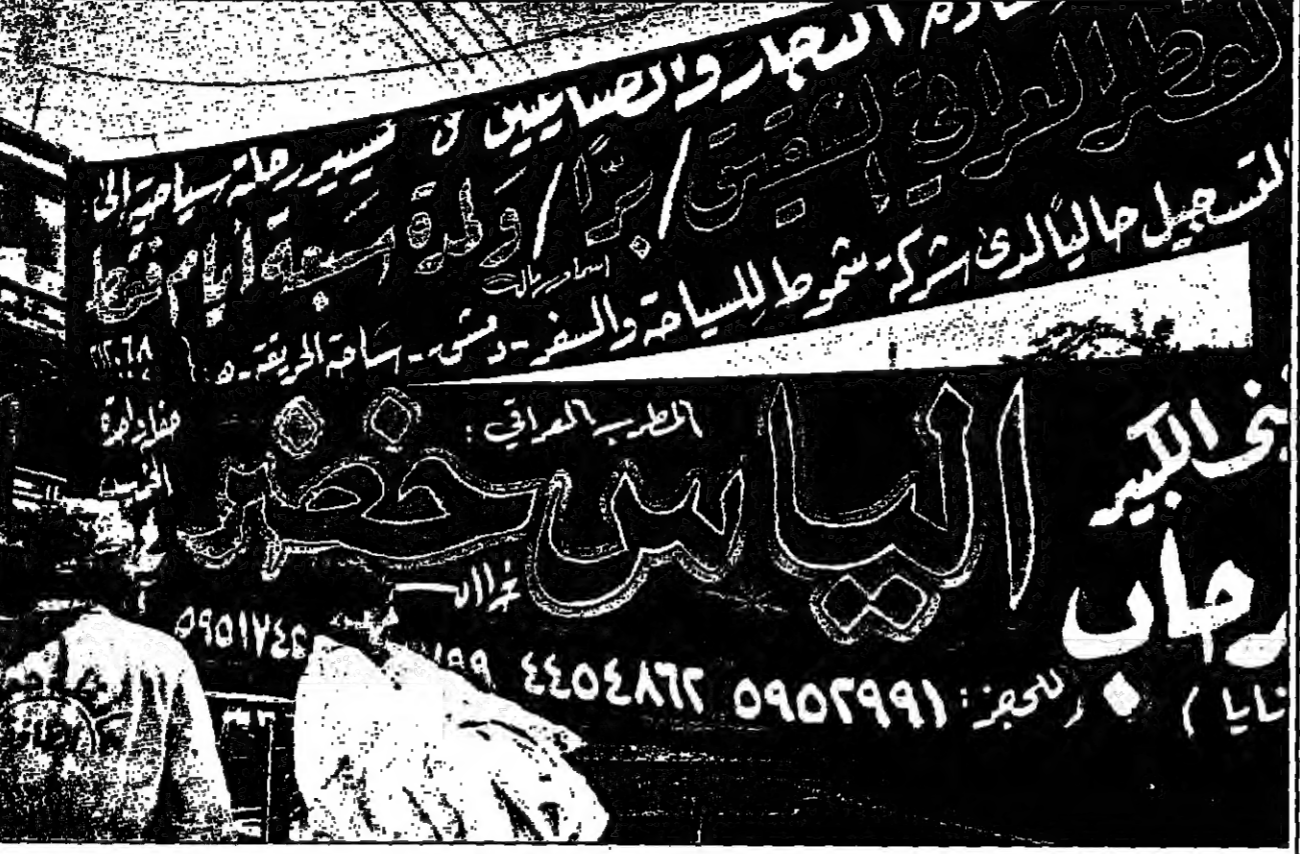 التجار والصناعيين تسيير رحلة سياحية إلى
القطر العراقي الشقيق / برًّا / ولمدة سبعة أيام فقط
التسجيل حاليًا لدى شركة شموط للسياحة والسفر - دمشق - ساحة الحريقة - هـ
الكبير
المطرب العراقي :
الياس خضر
حفلة واحدة
رحاب
للحجز : ٥٩٥٢٩٩١ ٤٤٥٤٨٦٢
٥٩٥١٧٤٤